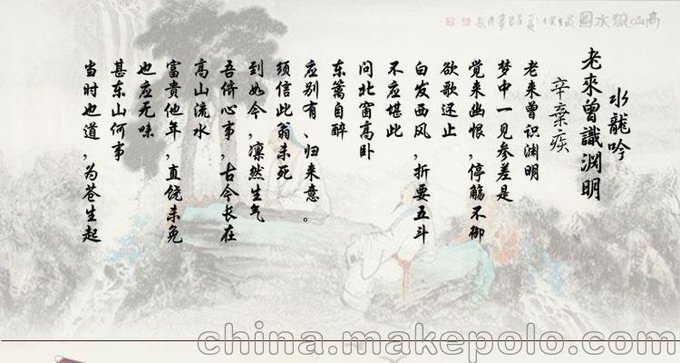 水龍吟
老來曾識淵明
辛棄疾
老来曾识渊明
梦中一见参差是
觉来幽恨,停觞不御
欲歌还止
白发西风,折要五斗
不应堪此
问北窗高卧
东篱自醉
应别有、归来意。
须信此翁未死
到如今,凛然生气
吾侪心事,古今长在
高山流水
富贵他年,直饶未免
也应无味
甚东山何事
当时也道,为苍生起
china.makepolo.com